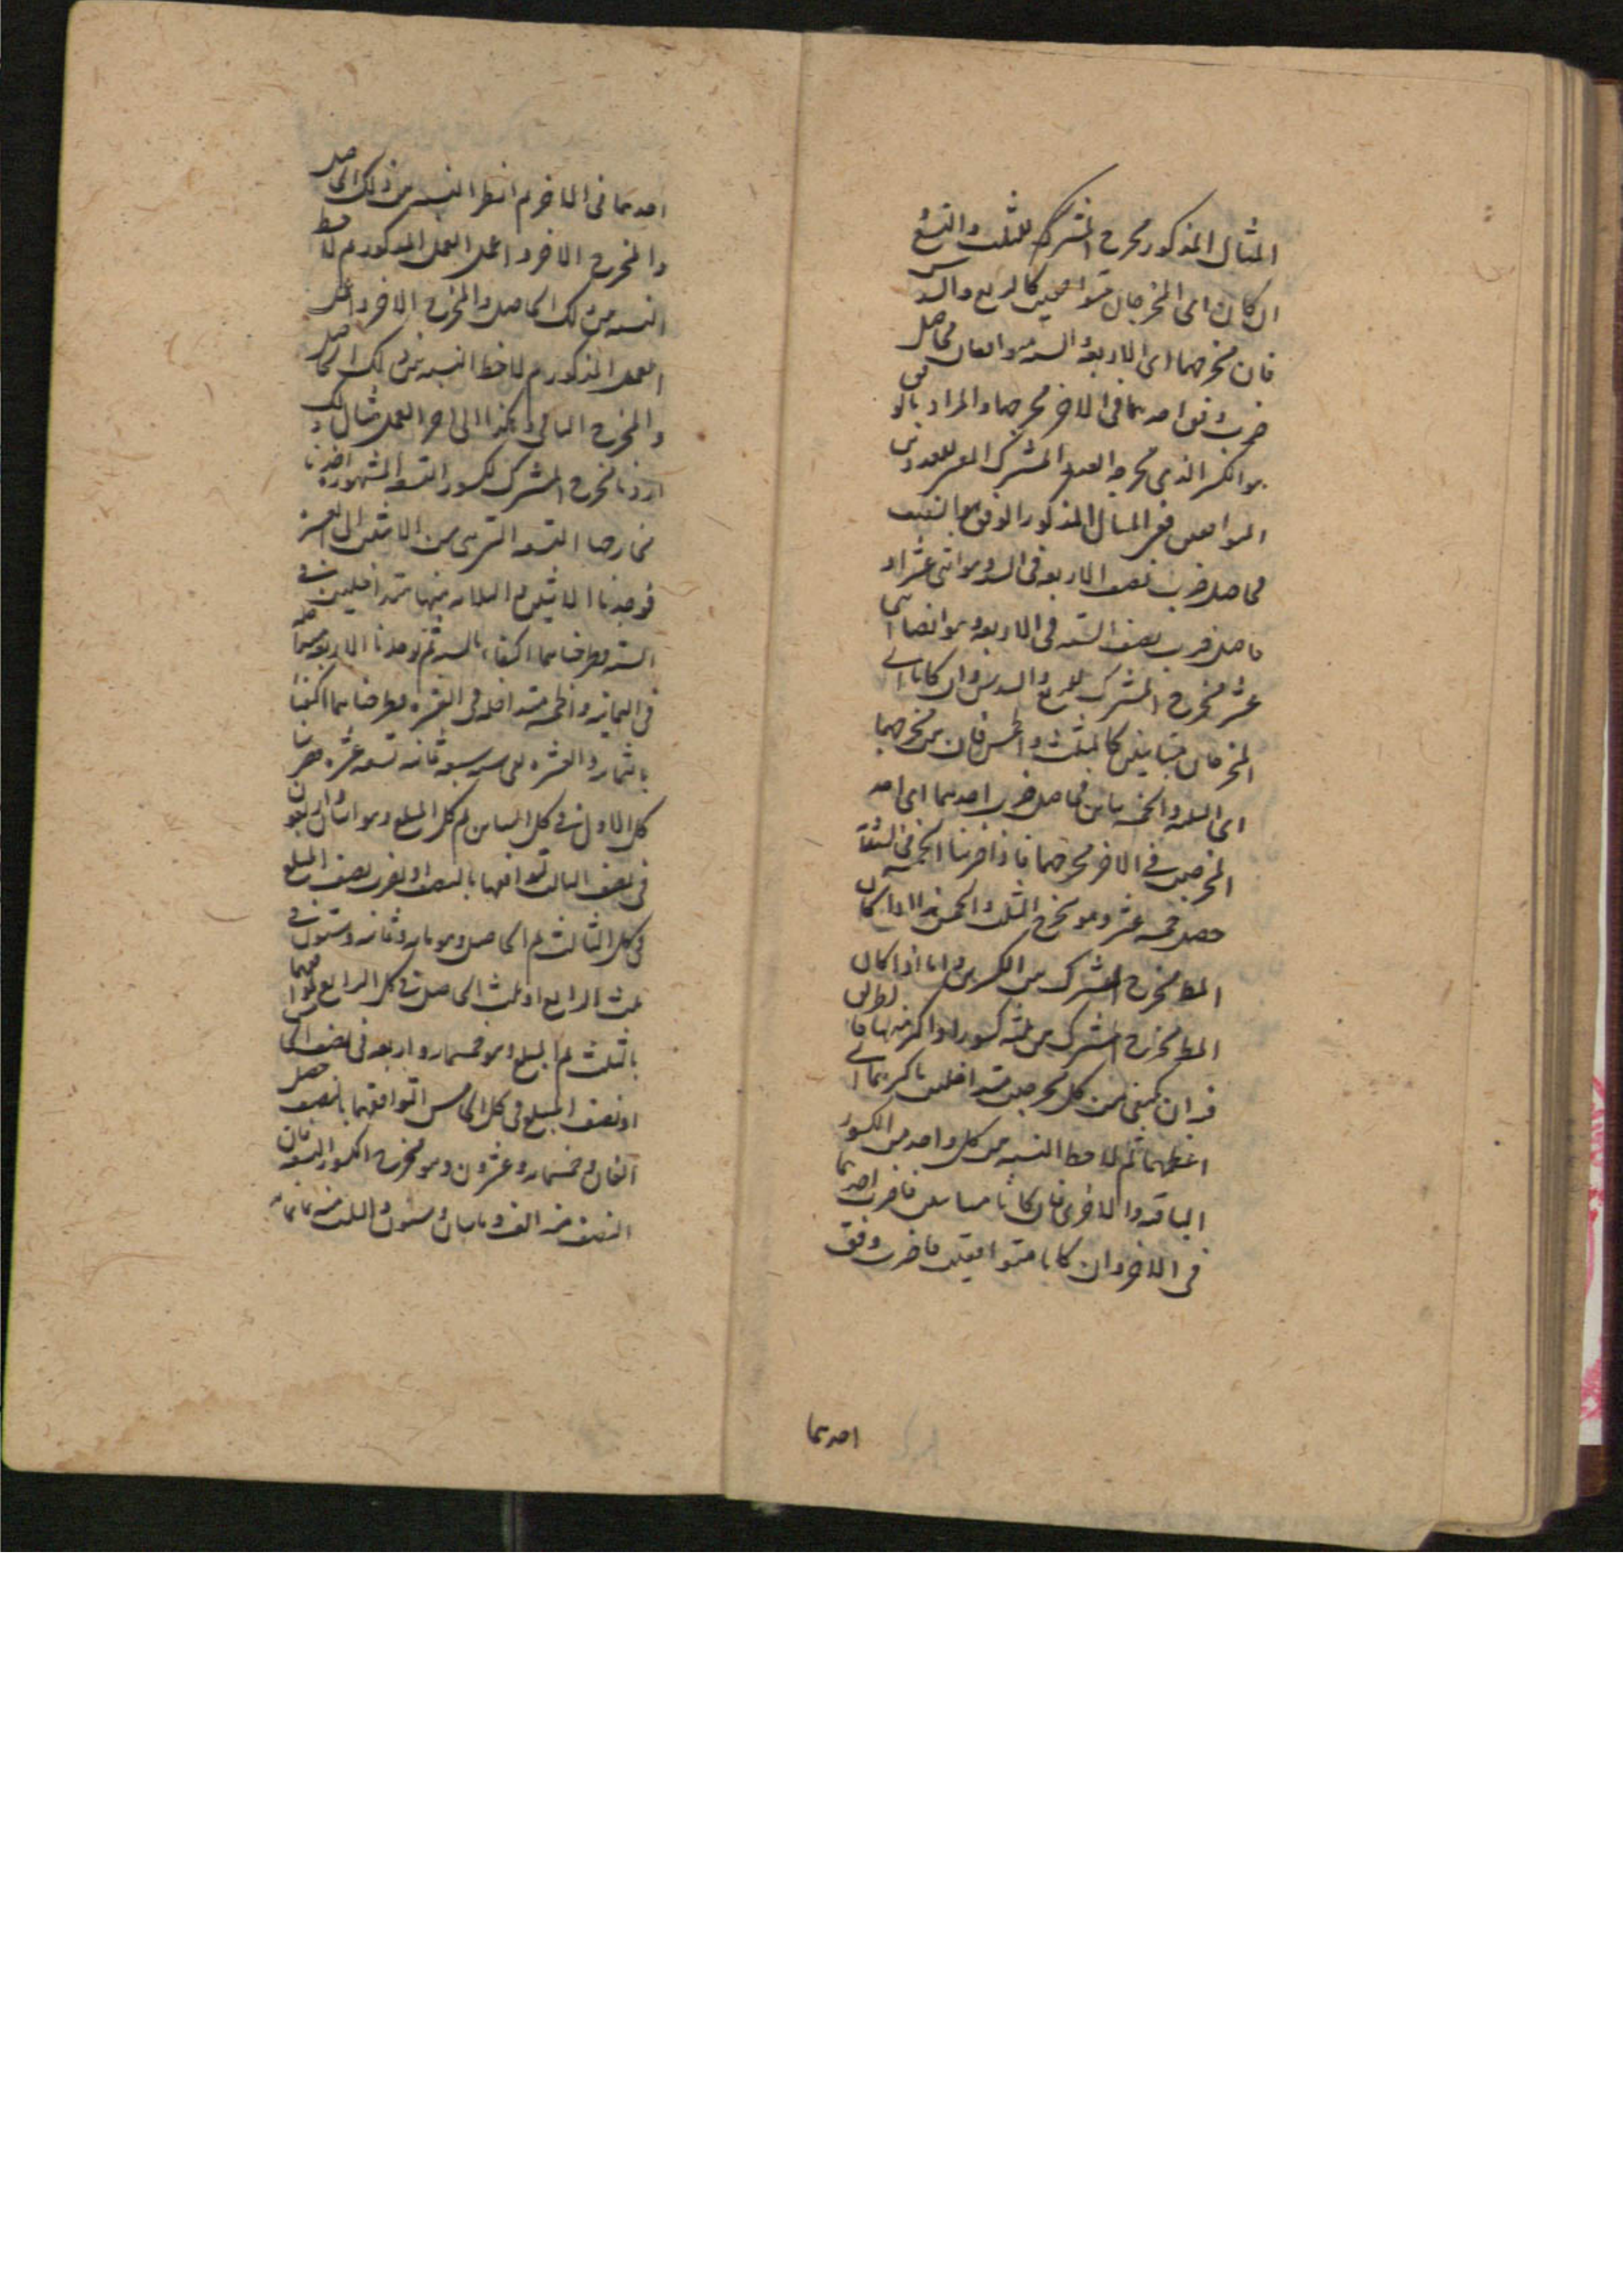 المثال المذكور مخرج المشترك للثلث والتسع
ان كان اى المخرجان متوافقين كالربع والسدس
فان مخرجهما اى الاربعة والستة متوافقان فحاصل
ضرب وفق احدهما فى الاخر مخرجهما والمراد بالوفق
هو الكسر الذى مخرجه العدد المشترك المعنى للعددين
المتوافقين ففى المثال المذكور الوفق هو النصف
فحاصل ضرب نصف الاربعة فى الستة وهو اثنى عشر او
حاصل ضرب نصف الستة فى الاربعة وهو ايضا اثنى
عشر مخرج المشترك للربع والسدس وان كانا اى
المخرجان متباينين كالثلث والخمس فان بين مخرجهما
اى الثلثة والخمسة تباين فحاصل ضرب احدهما اى احد
المخرجين فى الاخر مخرجهما فاذا ضربنا الخمسة فى الثلثة
حصل خمسة عشر وهو مخرج الثلث والخمس هذا اذا كان
المط مخرج المشترك بين الكسرين واما اذا كان
المط مخرج المشترك من ثلثة كسور او اكثر منها فا لطريق
فيه ان يكتفى من كل مخرجين متداخلين باكبرهما اى
اعظمهما ثم تلاحظ النسبة بين كل واحد من الكسور
الباقية والاخرى فان كانا متباينين فاضرب احدهما
فى الاخر وان كانا متوافقين فاضرب وفق
احدهما
احدهما فى الاخر ثم انظر النسبة بين ذلك الحاصل
والمخرج الاخر واعمل العمل المذكور ثم لاحظ
النسبة بين ذلك الحاصل والمخرج الاخر واعمل
العمل المذكور ثم لاحظ النسبة بين ذلك الحاصل
والمخرج الباقى وهكذا الى اخر العمل مثال ذلك
اردنا مخرج المشترك لكسور التسعة المشهورة اخذنا
مخارجها التسعة التى هى من الاثنين الى العشرة
فوجدنا الاثنين والثلاثة منها متداخلين فى
الستة طرحناهما اكتفاء بالستة ثم وجدنا الاربعة متداخلة
فى الثمانية والخمسة متداخلة فى العشرة وطرحناهما اكتفاء
بالثمانية والعشرة بقى ستة سبعة ثمانية تسعة عشرة ضربنا
كل الاول فى كل الثانى ثم كل المبلغ وهو اثنان واربعون
فى نصف الثالث لتوافقهما بالنصف او نضرب نصف المبلغ
فى كل الثالث ثم الحاصل وهو مائة وثمانية وستون فى
ثلث الرابع او ثلث الحاصل فى كل الرابع لتوافقهما
بالثلث ثم المبلغ وهو خمسمائة واربعة فى نصف الخامس
او نصف المبلغ فى كل الخامس لتوافقهما بالنصف حصل
الفان وخمسمائة وعشرون وهو مخرج الكسور التسعة فان
النصف منه الف ومايتان وستون والثلث منه ثمانمائة